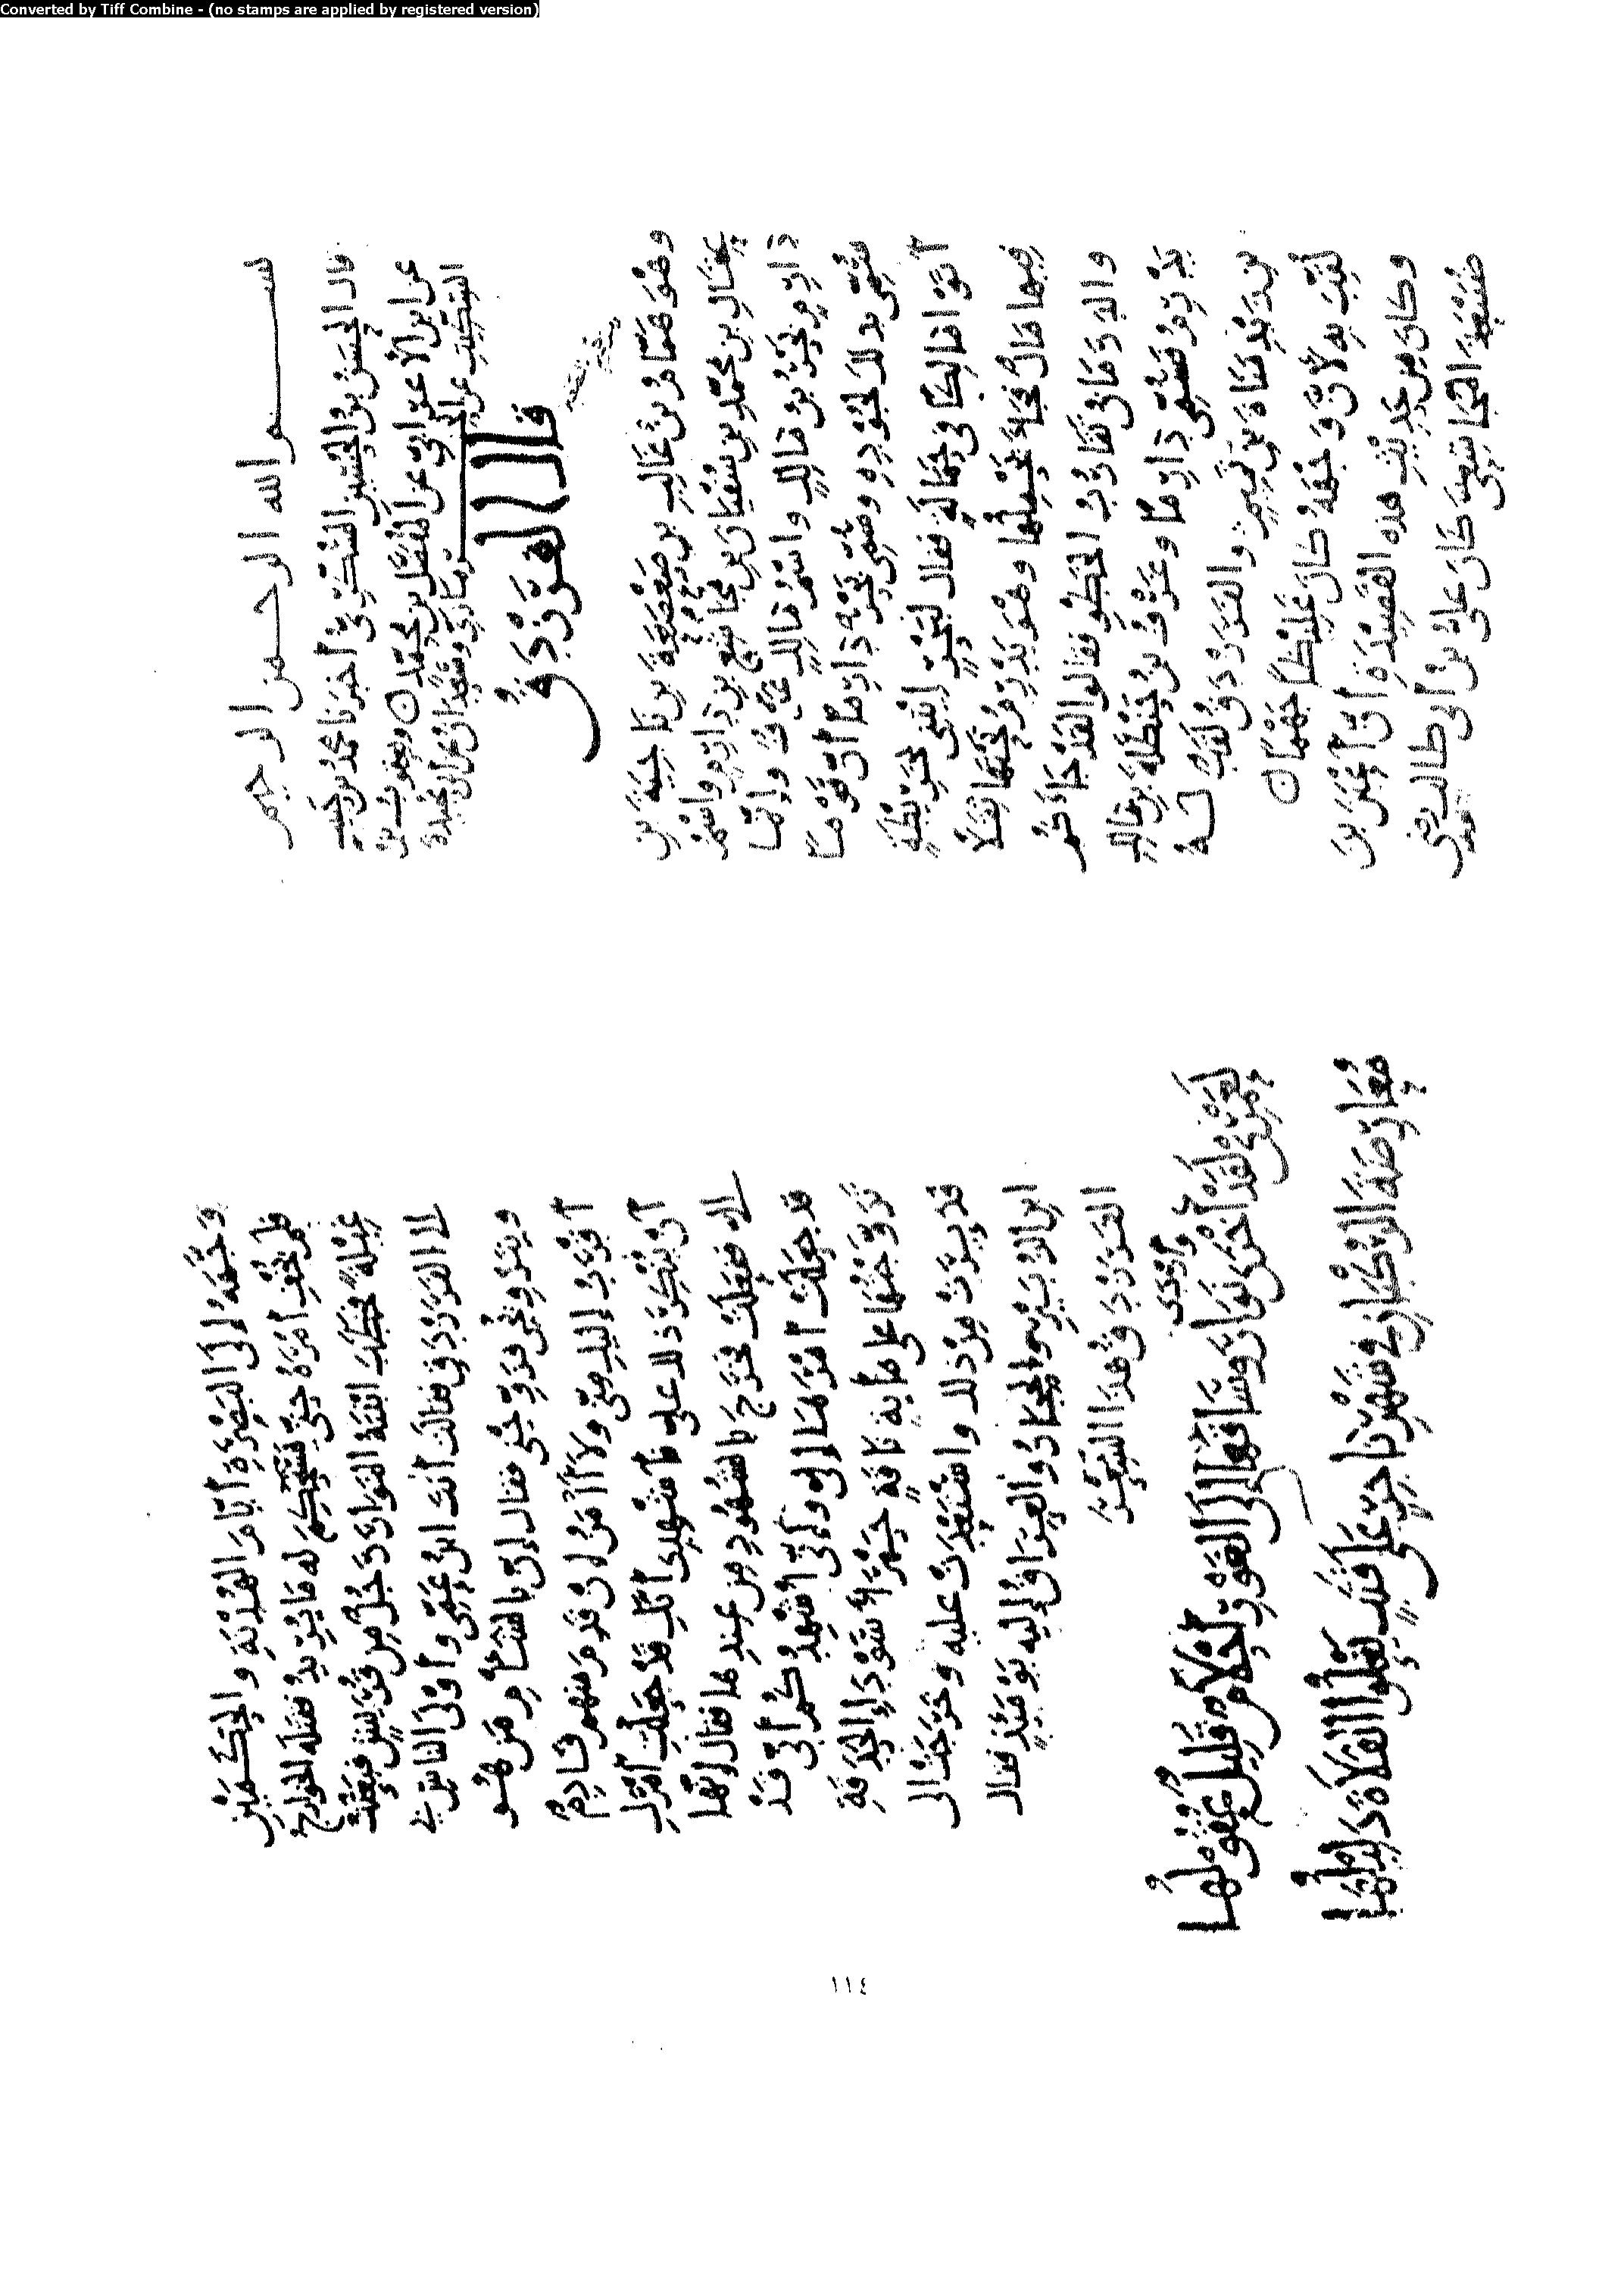 Converted by Tiff Combine - (no stamps are applied by registered version)
بسم الله الرحمن الرحيم
قال الحسن بن الحسين السكري أخبرنا محمد بن حبيب
عن ابن الأعرابي عن المفضل بن محمد ويعقوب بن
السكيت عن
قال الفرزدق
وهُوَ هَمَّامُ بنُ غَالِبِ بنِ صَعْصَعَةَ بنِ نَاجِيَةَ بنِ
عِقَالِ بنِ محمّدِ بنِ سُفْيَانَ بنِ مُجَاشِعِ بنِ دَارِمٍ واسْمُ
دَارِمٍ بَحْرُ بنُ مَالِكٍ واسمُ مَالِكٍ عَوْفٌ وإنَّما
سُمِّيَ بذلك لجُودِهِ وسُمِّيَ بَحْرٌ دَارِمًا أنَّ قَوْمًا
أَتَوْا مَالِكًا في حَمَالَةٍ فقال لبَحْرٍ ائْتِنِي بخَرِيْطَةٍ
فيها مَالٌ فجَاءَ يَحْمِلُها وهُوَ يَدْرِمُ تَحْتَها ثِقَلًا
والدَّرَمَانُ تَقَارُبُ الخَطْوِ فقالوا لقد جَاءَكُم
يَدْرِمُ فسُمِّيَ دَارِمًا وعَوْفُ بنُ حَنْظَلَةَ بنِ مالِكِ
بنِ زَيْدِ مَنَاةَ بنِ تَمِيمٍ والفَرَزْدَقُ لَقَبٌ لَهُ
لُقِّبَ بِهِ لأنَّ وَجْهَهُ كَانَ غَلِيْظًا جَهْمًا
وكان مِن حَدِيْثِ هذه القَصِيْدَةِ أنَّ أَعْيَنَ بنَ
ضُبَيْعَةَ المُجَاشِعِيَّ كَانَ عَلِيُّ بنُ أبي طالب رضي
وَجَّهَهُ إلى البَصْرَةِ أيّامَ الهُدْنَةِ والحَكَمَيْنِ
فلم يُخْفِ أَمْرَهُ حتّى يَسْتَحْكِمَ له مَا يُرِيدُ فقتله الخوارج
غِيْلَةً فخطب ابْنَتَهُ النَّوَارَ رَجُلٌ مِن قُرَيْشٍ فبَعَثَتْ
لِلى الفَرَزْدَقِ فقالت أنتَ ابنُ عَمِّي وأَوْلَى النَّاسِ بي
وبتَزْوِيجِي فزَوِّجْنِي فقال إنَّ بالشَّأْمِ مَنْ هُو
أَقْرَبُ إليكِ منّي ولا آمَنُ أن يَقْدَمَ منهم قادِمٌ
أن يُنْكِرَ ذلك عليّ فأَشْهِدِي أنَّكِ قد جَعَلْتِ أَمْرَكِ
لي ففعلت فخَرَجَ بالشُّهُودِ مِن عِندِها فقال إنّها
قد جعلت أمْرَها إليّ وإنّي أُشْهِدُكُم أنّي قَدْ
تَزَوَّجْتُها على مِأَيةِ نَاقَةٍ حَمْرَاءَ سَوْدَاءِ الحَدَقَةِ
فدَبَرَتْ مِن ذلك واسْتَعْدَتْ عليه وخَرَجَتْ إلى
ابن الزُّبَيْرِ والحِجَازُ والعِرَاقُ إليه يَوْمَئِذٍ فقال
الفَرَزْدَقُ هَذَا الشِّعْرَ
لَعَمْرِي لَقَدْ أَرْدَى نَوَارَ وَسَاقَهَا إلَى الغَوْرِ أَحْلَامٌ قَلِيلٌ عُقُولُهَا
وأَرْدَى
مُعَارِضَةَ الرُّكْبَانِ فِي شَهْرِ نَاجِرٍ عَلَى قَتَبٍ يَعْلُو الفَلَاةَ دَلِيلُهَا
١١٤